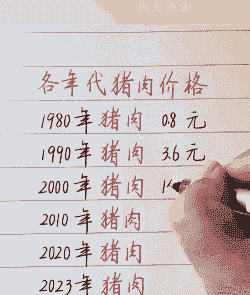 各年代猪肉价格
1980年猪肉 0.8元
1990年猪肉 3.6元
2000年猪肉 1
2010年猪肉
2020年猪肉
2023年猪肉